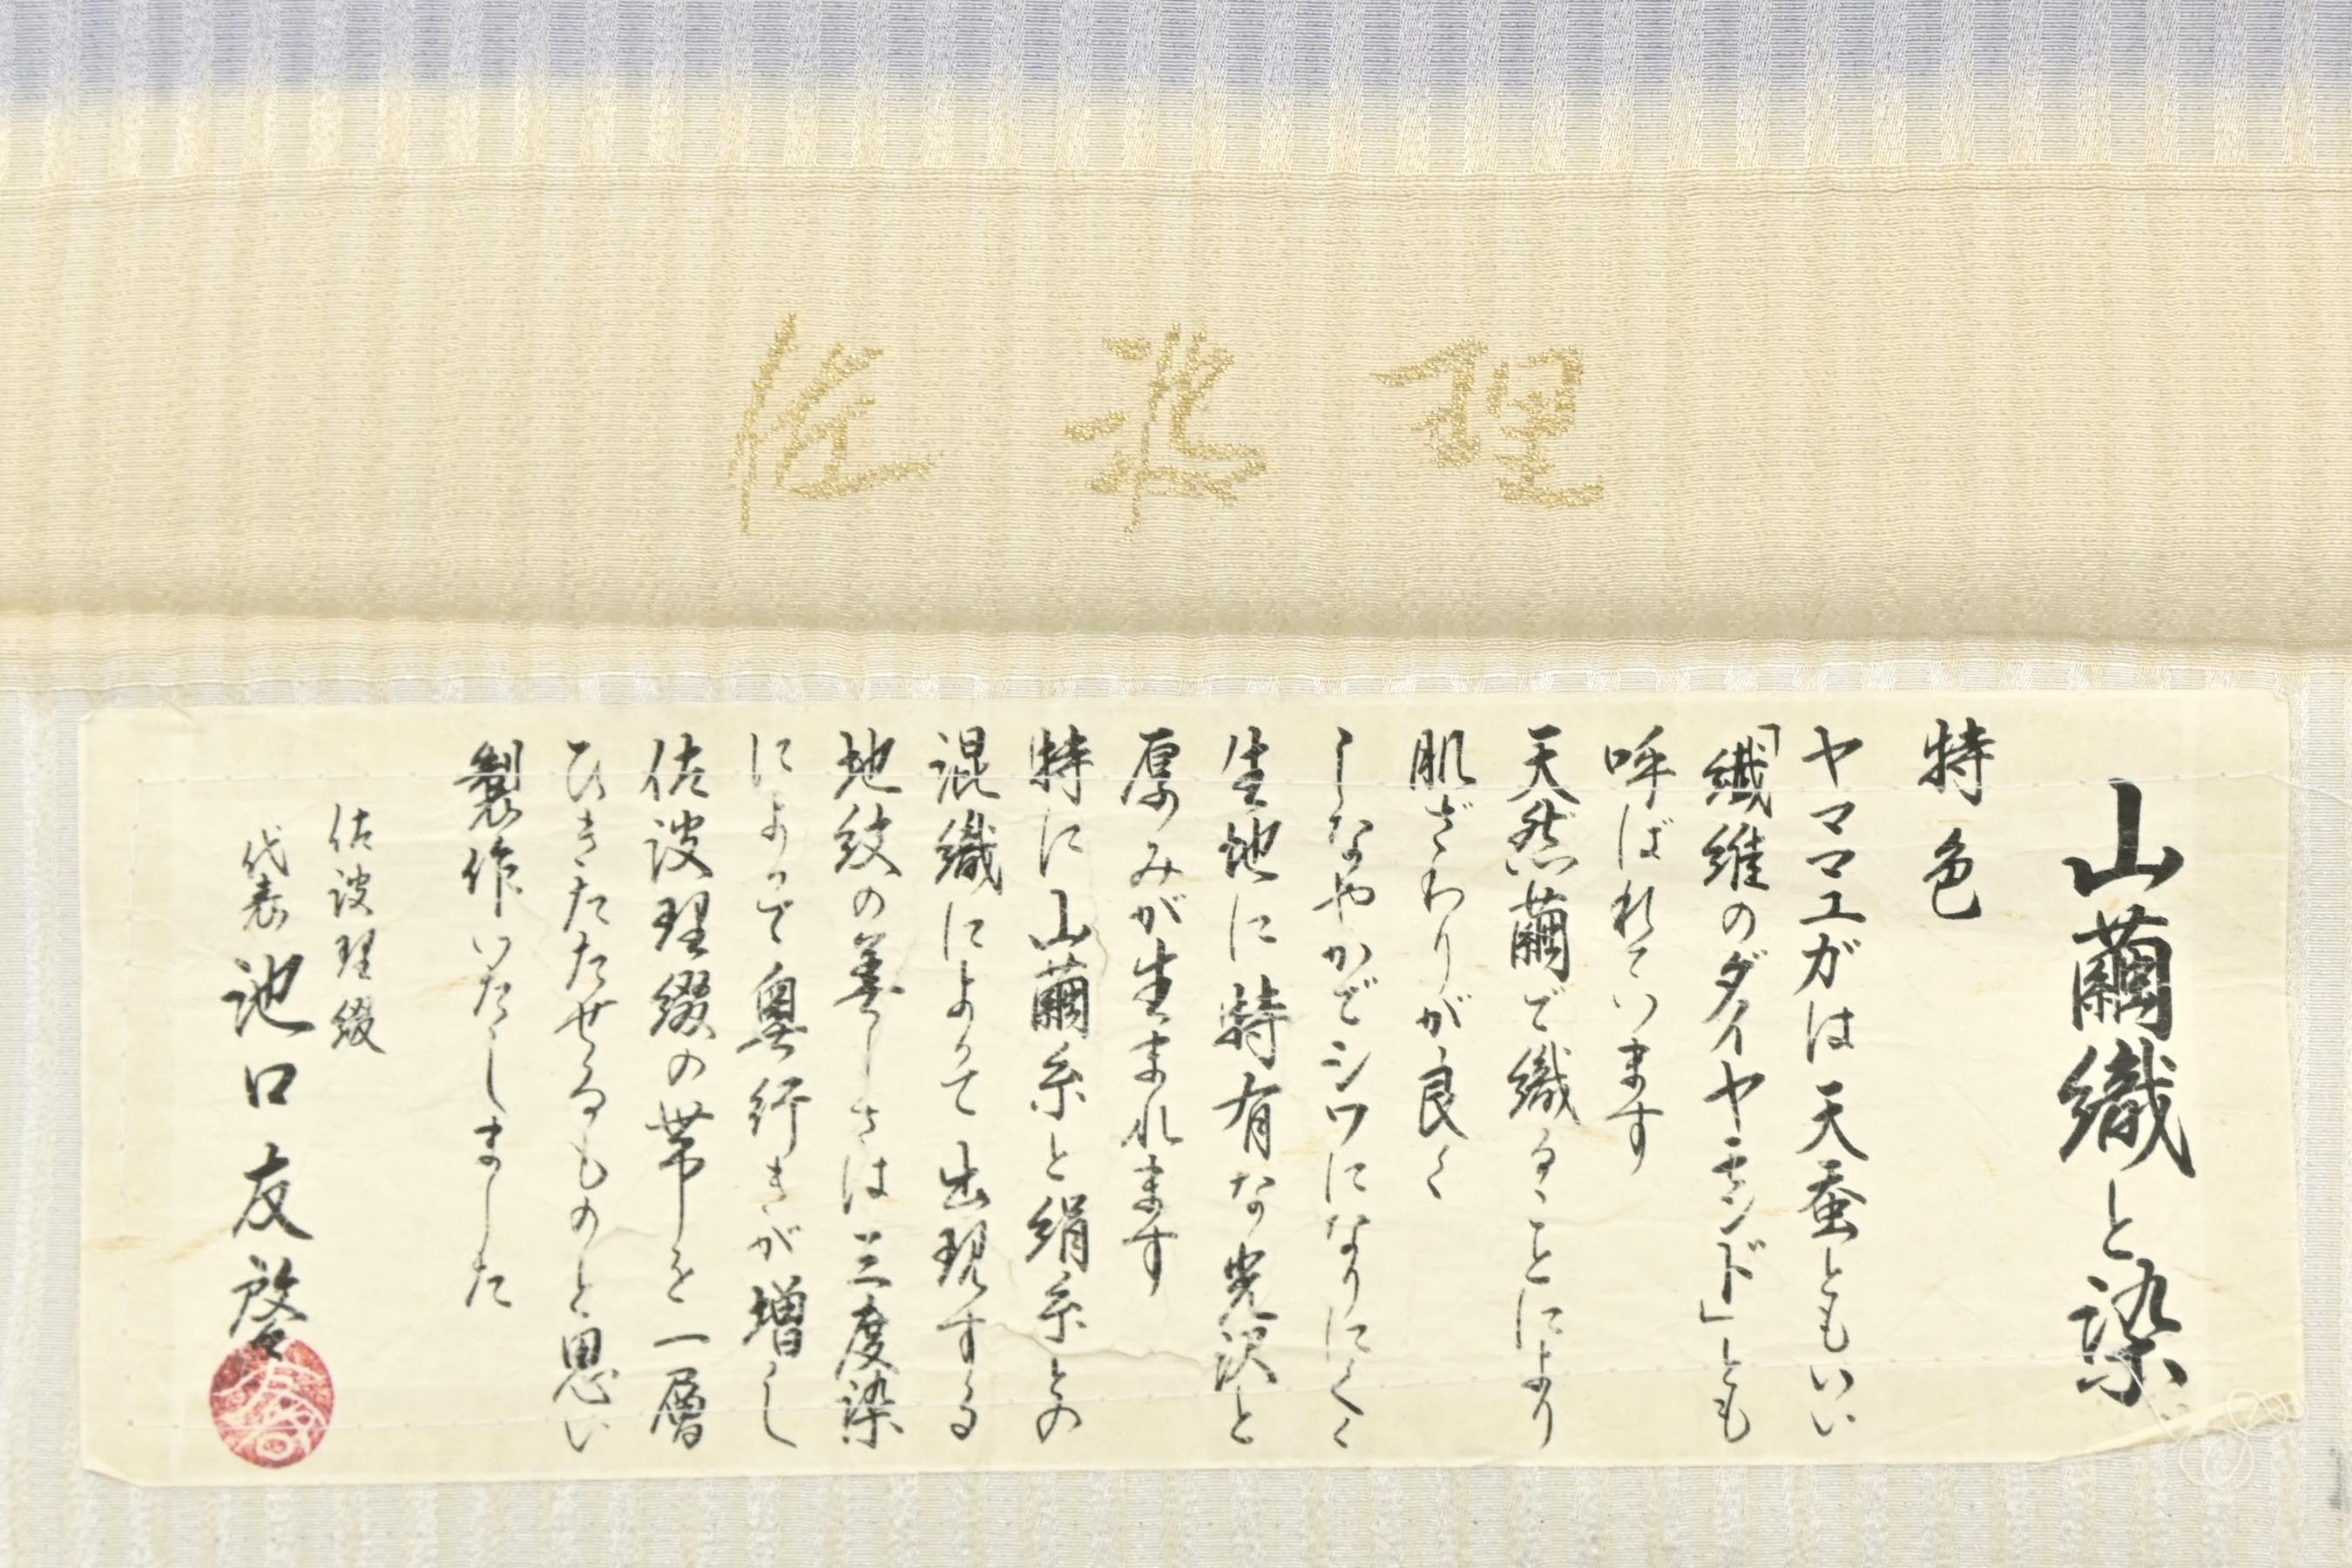 佐波理
山繭織と染
特色
ヤママユガは天蚕ともいい
「繊維のダイヤモンド」とも
呼ばれています
天然繭で織ることにより
肌ざわりが良く
しなやかでシワになりにくく
生地に特有な光沢と
厚みが生まれます
特に山繭糸と絹糸との
混織によって出現する
地紋の美しさは三度染
によって奥行きが増し
佐波理綴の帯を一層
ひきたたせるものと思い
製作いたしました
佐波理綴
代表 池口友啓